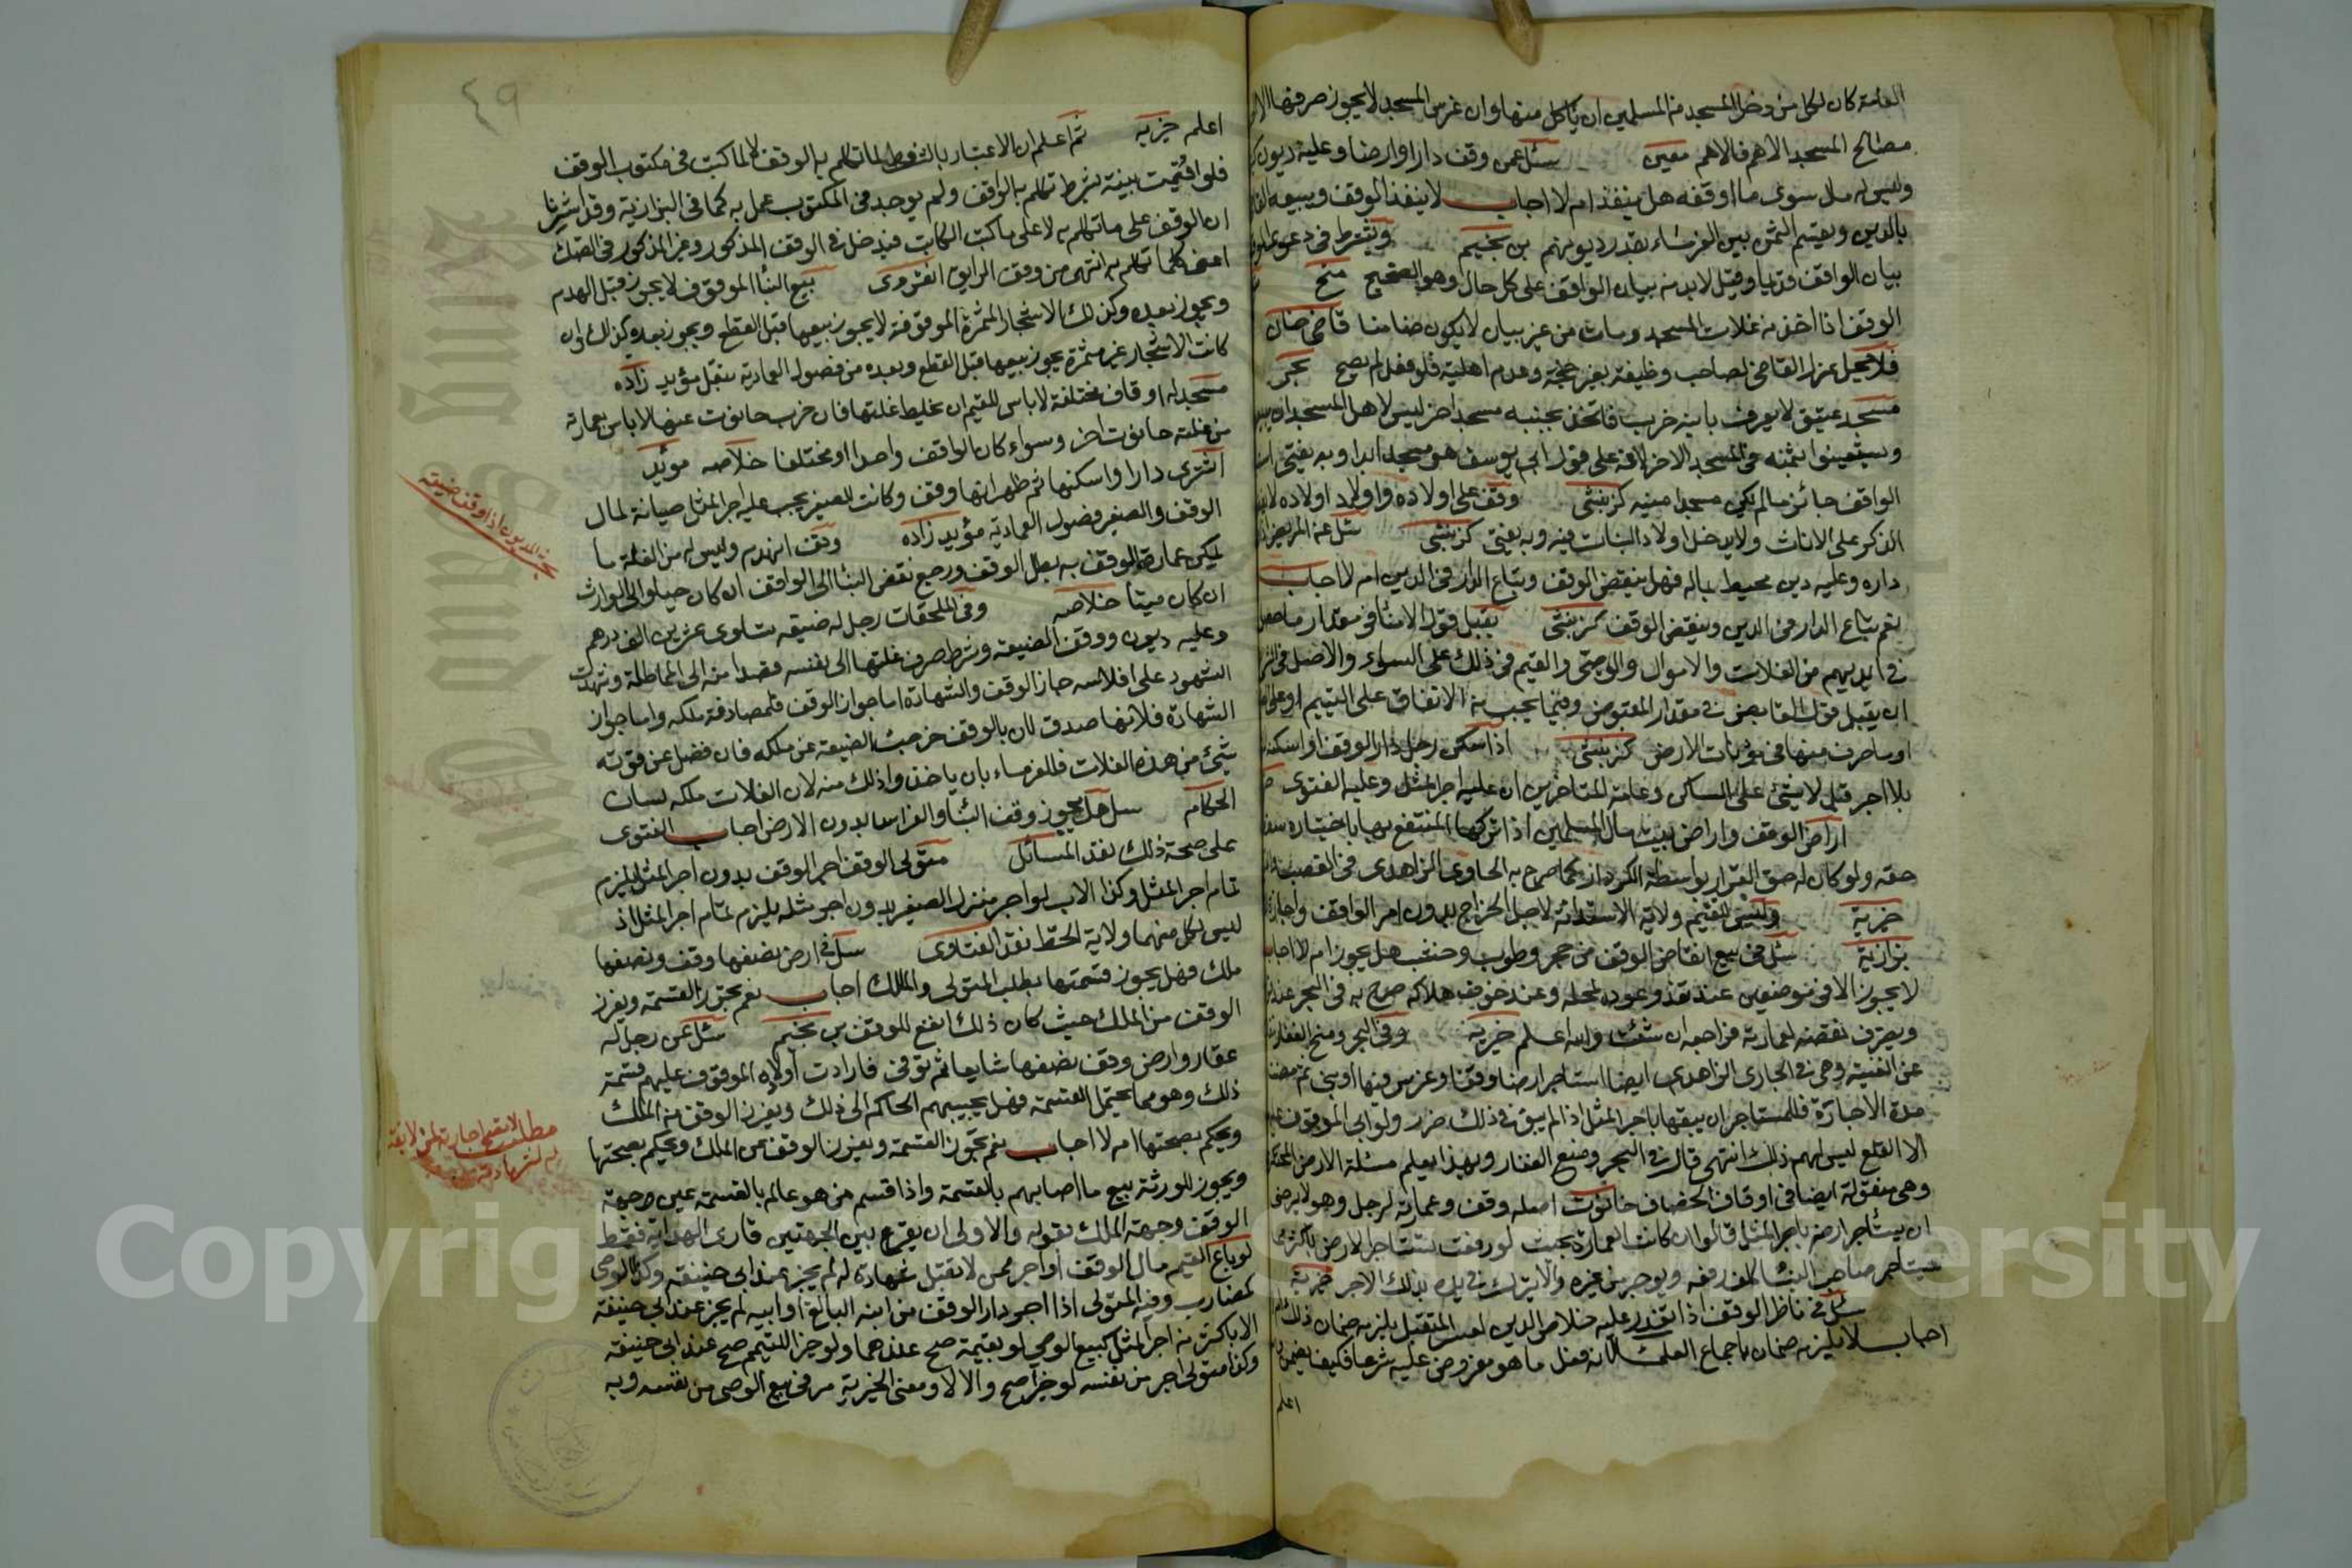 العامة كان لكل من دخل المسجد من المسلمين ان ياكل منها وان غرس المسجد لا يجوز صرفها الا
مصالح المسجد الاهم فالاهم معين سئل عمن وقف دارا وارضا وعليه ديون
وليس له مال سوى ما اوقفه هل ينفذ ام لا اجاب لا ينفذ الوقف ويبيعه
بالدين ويقسم الثمن بين الغرماء بقدر ديونهم بن نجيم ويشترط في دعوى
بيان الواقف قديما وقيل لا بد من بيان الواقف على كل حال وهو الصحيح منح
الوقف اذا اخذ من غلات المسجد ومات من غير بيان لا يكون ضامنا قاضي خان
فلا يحل عزل القاضي لصاحب وظيفة بغير جنحة وعدم اهلية فلو فعل لم يصح بحر
مسجد عتيق لا يعرف بانيه خرب فاتخذ بجنبه مسجد اخر ليس لاهل المسجد ان
ويستعينوا بثمنه في المسجد الاخر لانه على قول ابي يوسف هو مسجد ابدا وبه يفتى
الواقف جائز ما لم يكن مسجدا منيه كزبنثى وقف على اولاده واولاد اولاده
الذكر على الاناث ولا يدخل اولاد البنات فيه وبه يفتى كزبنثى سئل عن المريض اذا
داره وعليه دين محيط بماله فهل ينقض الوقف وتباع الدار في الدين ام لا اجاب
نعم تباع الدار في الدين وينقض الوقف كزبنثى يقبل قول الامناء في مقدار ما حصل
في ايديهم من الغلات والاموال والوصي والقيم في ذلك على السواء والاصل في
ان يقبل قول القابض في مقدار المقبوض وفيما يجب من الاتفاق على اليتيم او على
او ما صرف منها في مؤنات الارض كزبنثى اذا سكن رجل دار الوقف او اسكنه
بلا اجر قيل لا شيء على الساكن وعامة المتاخرين ان عليه اجر المثل وعليه الفتوى
اراض الوقف واراض بيت مال المسلمين اذا تركها المنتفع بها باختياره سقط
حقه ولو كان له حق القرار بواسطة الكردار كما صرح به الحاوي الزاهدي في
خيرية وليس للقيم ولاية الاستدانة لاجل الخراج بدون امر الواقف
بزازية سئل في بيع انقاض الوقف من حجر وطوب وخشب هل يجوز ام لا اجاب
لا يجوز الا في موضعين عند تعذر عوده لمحله وعند خوف هلاكه صرح به في البحر
ويصرف نقضه لعمارته فراجعه ان شئت والله اعلم خيرية وفي البحر ومنح الغفار
عن القنية وهي في الحاوي الزاهدي ايضا استاجر ارضا وقفا وغرس فيها او بنى ثم مضت
مدة الاجارة فللمستاجر ان يبقيها باجر المثل اذا لم يبق في ذلك ضرر ولو ابى الموقوف
الا القلع ليس لهم ذلك انتهى قال في البحر ومنح الغفار وبهذا يعلم مسئلة الارض
وهي منقولة ايضا في اوقاف الخصاف حانوت اصله وقف وعمارته لرجل وهو لا يرضى
ان يستاجر ارضه باجر المثل قالوا ان كانت العمارة بحيث لو رفعت تستاجر الارض باكثر مما
يستاجر صاحب البناء كلف رفعه ويوجر من غيره والا يترك في يده بذلك الاجر خيرية
سئل في ناظر الوقف اذا تقدر عليه خلاص الدين هل يلزمه ضمان ذلك
اجاب لا يلزمه ضمان باجماع العلماء لانه فعل ما هو مفروض عليه شرعا فكيف يضمن
اعلم
٤٩
اعلم خيرية ثم اعلم ان الاعتبار بالشروط لما تكلم به الواقف لا لما كتب في مكتوب الوقف
فلو اقيمت بينة بشرط تكلم به الواقف ولم يوجد في المكتوب عمل به كما في البزازية وقد اشرنا
ان الوقف على ما تكلم به لا على ما كتب الكاتب فيدخل في الوقف المذكور وغير المذكور في الصك
اعني كلما تكلم به انتهى من وقف الرايق انقروى بيع البناء الموقوف لا يجوز قبل الهدم
ويجوز بعده وكذلك الاشجار المثمرة الموقوفة لا يجوز بيعها قبل القطع ويجوز بعده كذلك وان
كانت الاشجار غير مثمرة يجوز بيعها قبل القطع وبعده من فصول العمادية بنقل مؤيد زاده
مسجد له اوقاف مختلفة لا باس للقيم ان يخلط غلتها فان خرب حانوت عنها لا باس بعمارته
من غلة حانوت اخر وسواء كان الواقف واحدا او مختلفا خلاصه مؤيد
اشترى دارا واسكنها ثم ظهر انها وقف وكانت للصغير يجب عليه اجر المثل صيانة لمال
الوقف والصغير فصول العمادية مؤيد زاده وقف انهدم وليس له من الغلة ما
يمكن عمارة الوقف به بطل الوقف ورجع نقض البناء الى الواقف ان كان حيا والى الوارث
ان كان ميتا خلاصه وفي الملحقات رجل له ضيعة تساوى عشرين الف درهم
وعليه ديون ووقف الضيعة وشرط صرف غلتها الى نفسه قصدا منه الى المماطلة وشهدت
الشهود على افلاسه جاز الوقف والشهادة اما جواز الوقف فلمصادفة ملكه واما جواز
الشهادة فلانها صدق لان بالوقف خرجت الضيعة عن ملكه فان فضل عن قوته
شيء من هذه الغلات فللغرماء بان ياخذوا ذلك منه لان الغلات ملكه لسان
الحكام سل هل يجوز وقف البناء والغراس بدون الارض اجاب الفتوى
على صحة ذلك نقد المسائل متولى الوقف اجر الوقف بدون اجر المثل يلزم
تمام اجر المثل وكذا الاب لو اجر منزل الصغير بدون اجر مثله يلزم تمام اجر المثل اذ
ليس لكل منهما ولاية الحط نقد الفتاوى سل في ارض نصفها وقف ونصفها
ملك فهل يجوز قسمتها بطلب المتولى والمالك اجاب نعم تجوز القسمة ويفرز
الوقف من الملك حيث كان ذلك انفع للوقف بن نجيم سئل عن رجل له
عقار وارض وقف نصفها شايعا ثم توفى فارادت اولاده الموقوف عليهم قسمة
ذلك وهو مما يحتمل القسمة فهل يجيبهم الحاكم الى ذلك ويفرز الوقف من الملك
ويحكم بصحتها ام لا اجاب نعم تجوز القسمة ويفرز الوقف من الملك ويحكم بصحتها
ويجوز للورثة بيع ما اصابهم بالقسمة واذا قسم من هو عالم بالقسمة عين جهة
الوقف وجهة الملك بقوله والاولى ان يقرع بين الجهتين قارى الهداية فقط
لو باع القيم مال الوقف او اجر ممن لا تقبل شهادة له لم يجز عند ابي حنيفة وكذا الوصى
كمضارب وفيه المتولى اذا اجر دار الوقف من ابنه البالغ او ابيه لم يجز عند ابي حنيفة
الا باكثر من اجر المثل كبيع الوصى لو بقيمة صح عندهما ولو خيرا لليتيم صح عند ابي حنيفة
وكذا متولى اجر من نفسه لو خيرا صح والا لا ومعنى الخيرية مر في بيع الوصى من نفسه وبه
المديون اذا وقف ضيعة
مطلب لا تصح اجارته لمن لا تقبل
Copyright © King Saud University